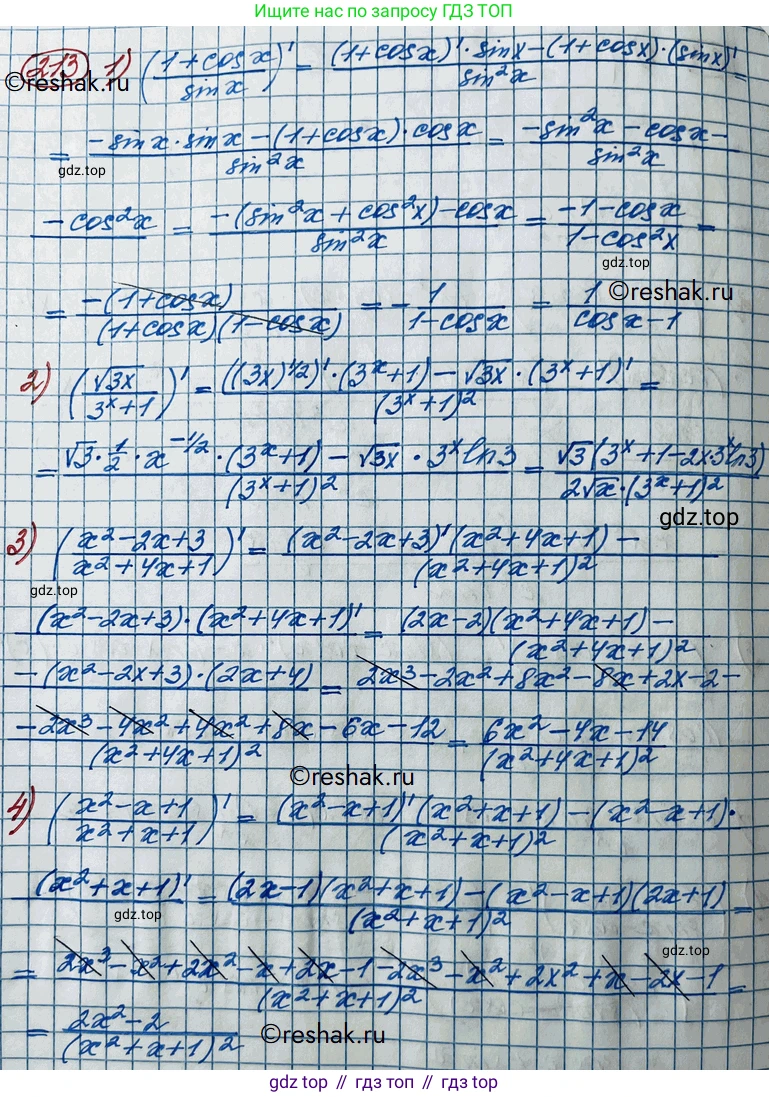 Ищите нас по запросу ГДЗ ТОП
213 1) ((1+cosx)/(sinx))' = ((1+cosx)'·sinx-(1+cosx)·(sinx)')/(sin²x) =
= (-sinx·sinx-(1+cosx)·cosx)/(sin²x) = (-sin²x-cosx-)/(sin²x)
gdz.top
-cos²x = (-(sin²x+cos²x)-cosx)/(sin²x) = (-1-cosx)/(1-cos²x) =
gdz.top
©reshak.ru
= (-(1+cosx))/((1+cosx)(1-cosx)) = -1/(1-cosx) = 1/(cosx-1)
2) (√3x/(3ˣ+1))' = (((3x)^1/2)'·(3ˣ+1)-√3x·(3ˣ+1)')/((3ˣ+1)²) =
= (√3·1/2·x^-1/2·(3ˣ+1)-√3x·3ˣln3)/((3ˣ+1)²) = (√3(3ˣ+1-2x3ˣln3))/(2√x·(3ˣ+1)²)
gdz.top
3) ((x²-2x+3)/(x²+4x+1))' = ((x²-2x+3)'(x²+4x+1)-)/((x²+4x+1)²)
gdz.top
(x²-2x+3)·(x²+4x+1)' = ((2x-2)(x²+4x+1)-)/((x²+4x+1)²)
-(x²-2x+3)·(2x+4) = 2x³-2x²+8x²-8x+2x-2-
(-2x³-4x²+4x²+8x-6x-12)/((x²+4x+1)²) = (6x²-4x-14)/((x²+4x+1)²)
©reshak.ru
4) ((x²-x+1)/(x²+x+1))' = ((x²-x+1)'(x²+x+1)-(x²-x+1)·)/((x²+x+1)²)
(x²+x+1)' = ((2x-1)(x²+x+1)-(x²-x+1)(2x+1))/((x²+x+1)²) =
gdz.top
gdz.top
= (2x³-x²+2x²-x+2x-1-2x³-x²+2x²+x-2x-1)/((x²+x+1)²) =
= (2x²-2)/((x²+x+1)²) ©reshak.ru
gdz.top // гдз топ // gdz top